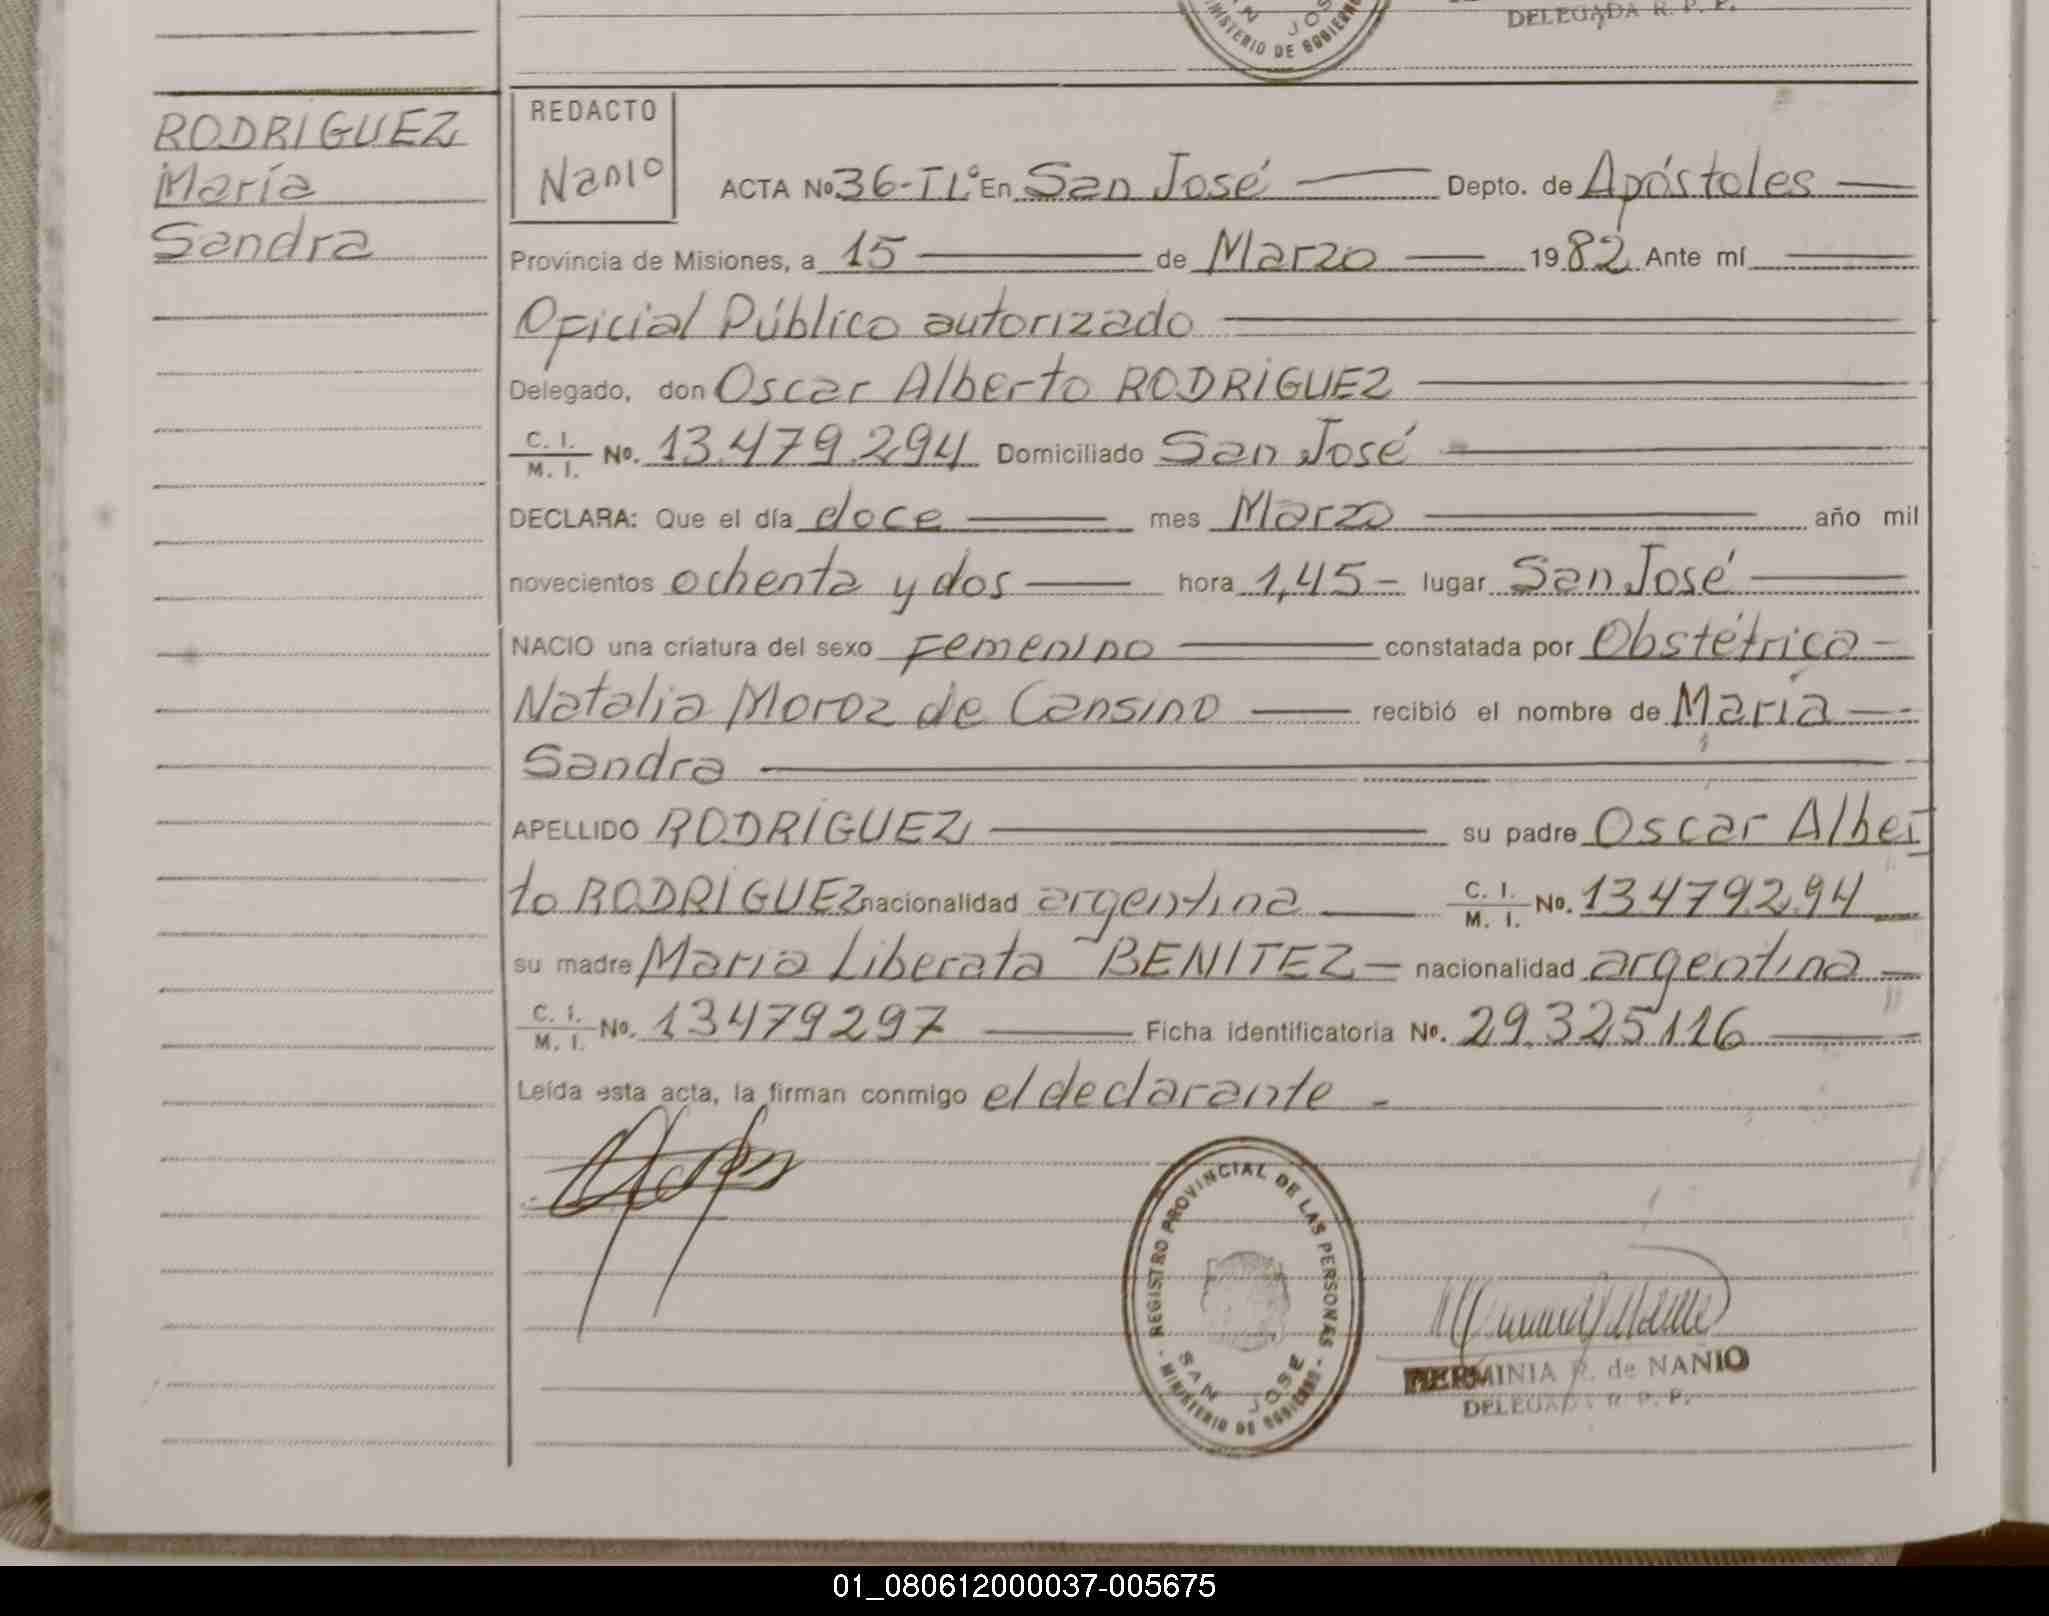 DELEGADA R. P. P.
SAN JOSE
MINISTERIO DE GOBIERNO
RODRIGUEZ
María
Sandra
REDACTO
Nanio
ACTA No 36-TI.º En San José Depto. de Apóstoles
Provincia de Misiones, a 15 de Marzo 1982 Ante mí
Oficial Público autorizado
Delegado, don Oscar Alberto RODRIGUEZ
C. I. / M. I. No. 13.479.294 Domiciliado San José
DECLARA: Que el día doce mes Marzo año mil
novecientos ochenta y dos hora 1,45 - lugar San José
NACIO una criatura del sexo Femenino constatada por Obstétrica
Natalia Moroz de Cansino recibió el nombre de María
Sandra
APELLIDO RODRIGUEZ su padre Oscar Alber
to RODRIGUEZ nacionalidad argentina C. I. / M. I. No. 13479294
su madre Maria Liberata BENITEZ - nacionalidad argentina
C. I. / M. I. No. 13479297 Ficha identificatoria No. 29.325.116
Leída esta acta, la firman conmigo el declarante -
REGISTRO PROVINCIAL DE LAS PERSONAS
SAN JOSE
- MINISTERIO DE GOBIERNO -
HERMINIA R. de NAÑIO
DELEGADA R. P. P.
01_080612000037-005675